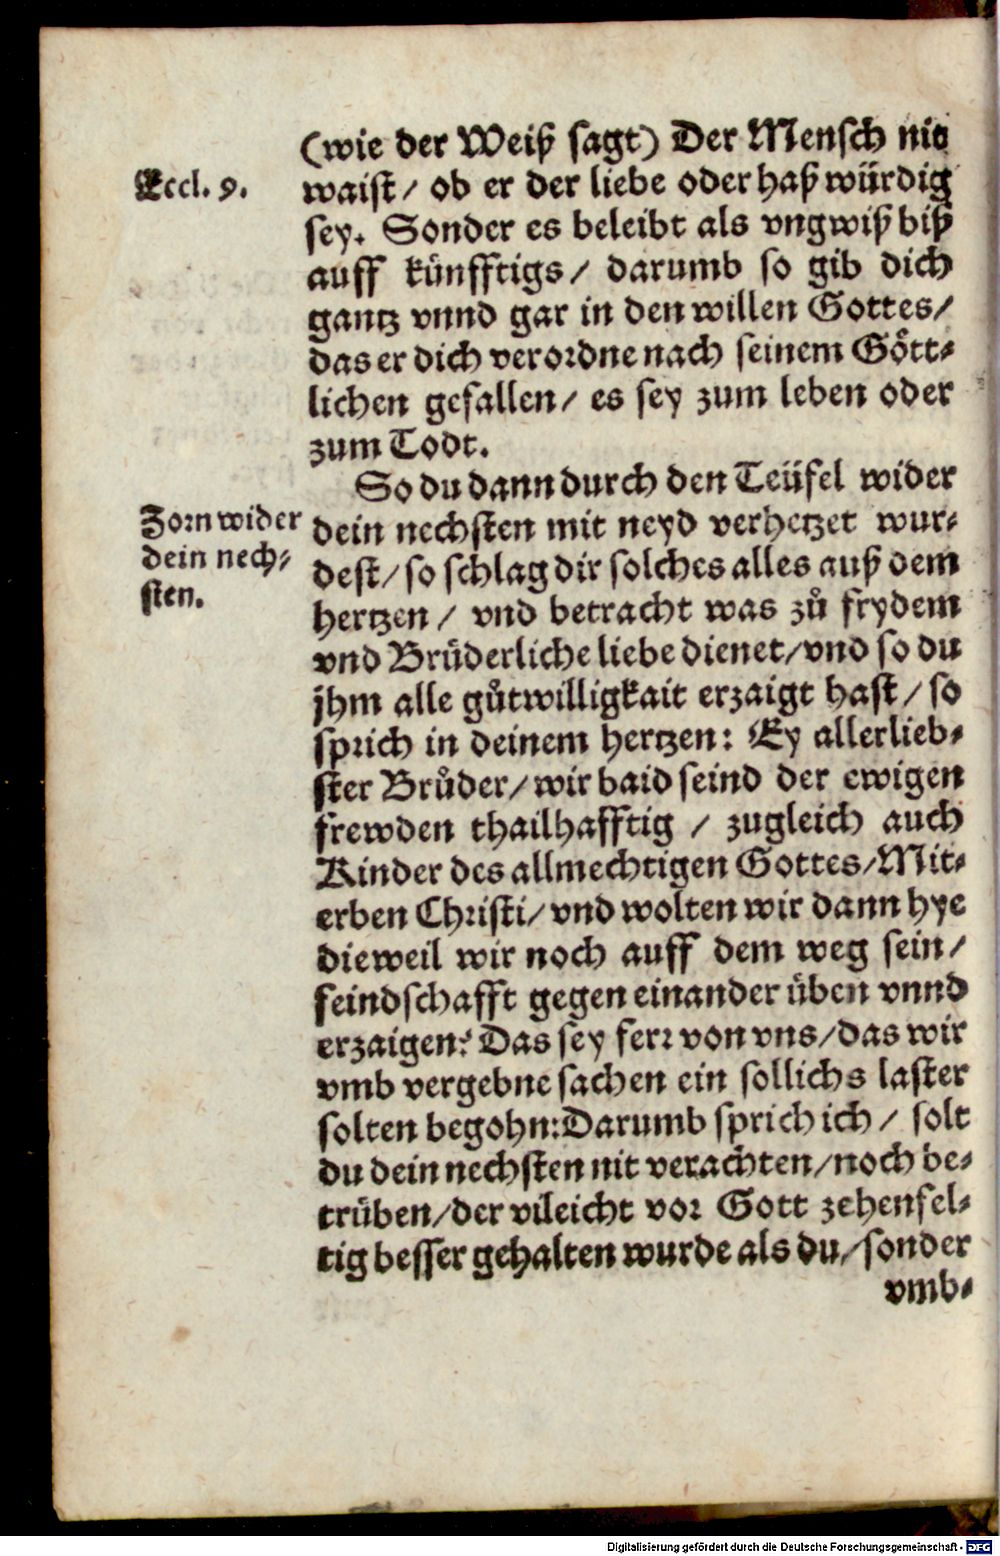 (wie der Weiß sagt) Der Mensch nit
Eccl. 9.
waist/ ob er der liebe oder haß würdig
sey. Sonder es beleibt als vngwiß biß
auff künfftigs/ darumb so gib dich
gantz vnnd gar in den willen Gottes/
das er dich verordne nach seinem Gött⸗
lichen gefallen/ es sey zum leben oder
zum Todt.
So du dann durch den Teüfel wider
Zorn wider
dein nech⸗
sten.
dein nechsten mit neyd verhetzet wur⸗
dest/ so schlag dir solches alles auß dem
hertzen/ vnd betracht was zů frydem
vnd Brůderliche liebe dienet/ vnd so du
jhm alle gůtwilligkait erzaigt hast/ so
sprich in deinem hertzen: Ey allerlieb⸗
ster Brůder/ wir baid seind der ewigen
frewden thailhafftig / zugleich auch
Kinder des allmechtigen Gottes/ Mit⸗
erben Christi/ vnd wolten wir dann hye
dieweil wir noch auff dem weg sein/
feindschafft gegen einander üben vnnd
erzaigen? Das sey ferr von vns/ das wir
vmb vergebne sachen ein sollichs laster
solten begohn: Darumb sprich ich/ solt
du dein nechsten nit verachten/ noch be⸗
trüben/ der vileicht vor Gott zehenfel⸗
tig besser gehalten wurde als du/ sonder
vmb⸗
Digitalisierung gefördert durch die Deutsche Forschungsgemeinschaft - DFG